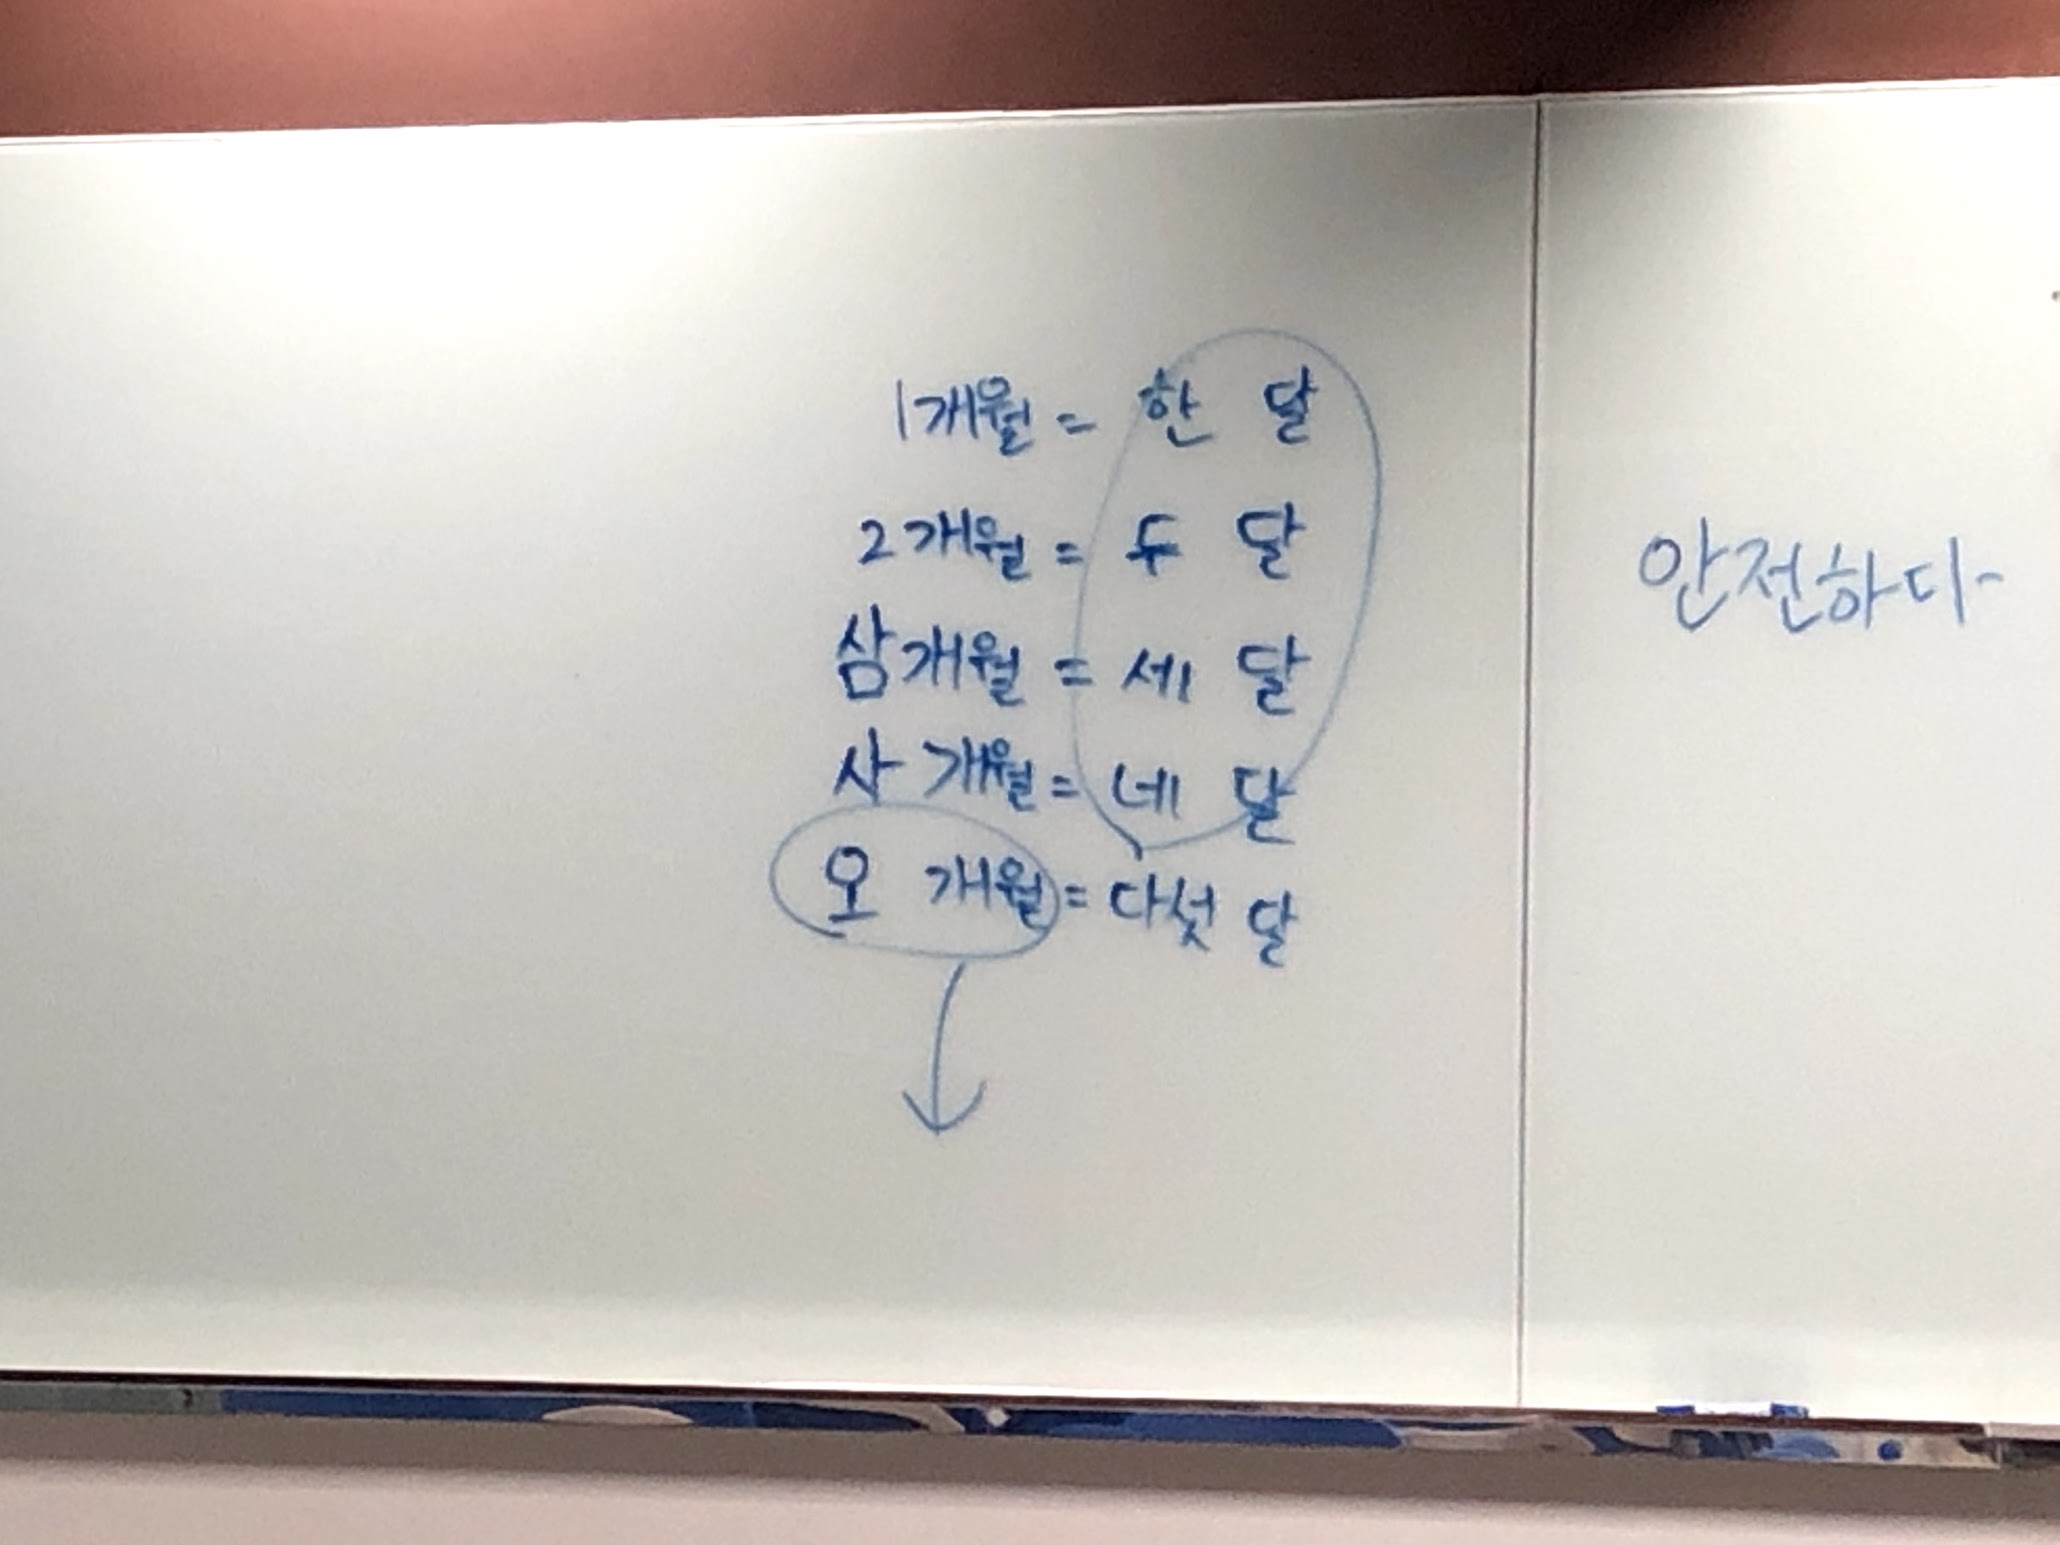 1개월 = 한 달
2개월 = 두 달
삼개월 = 세 달
사 개월 = 네 달
오 개월 = 다섯 달
안전하다